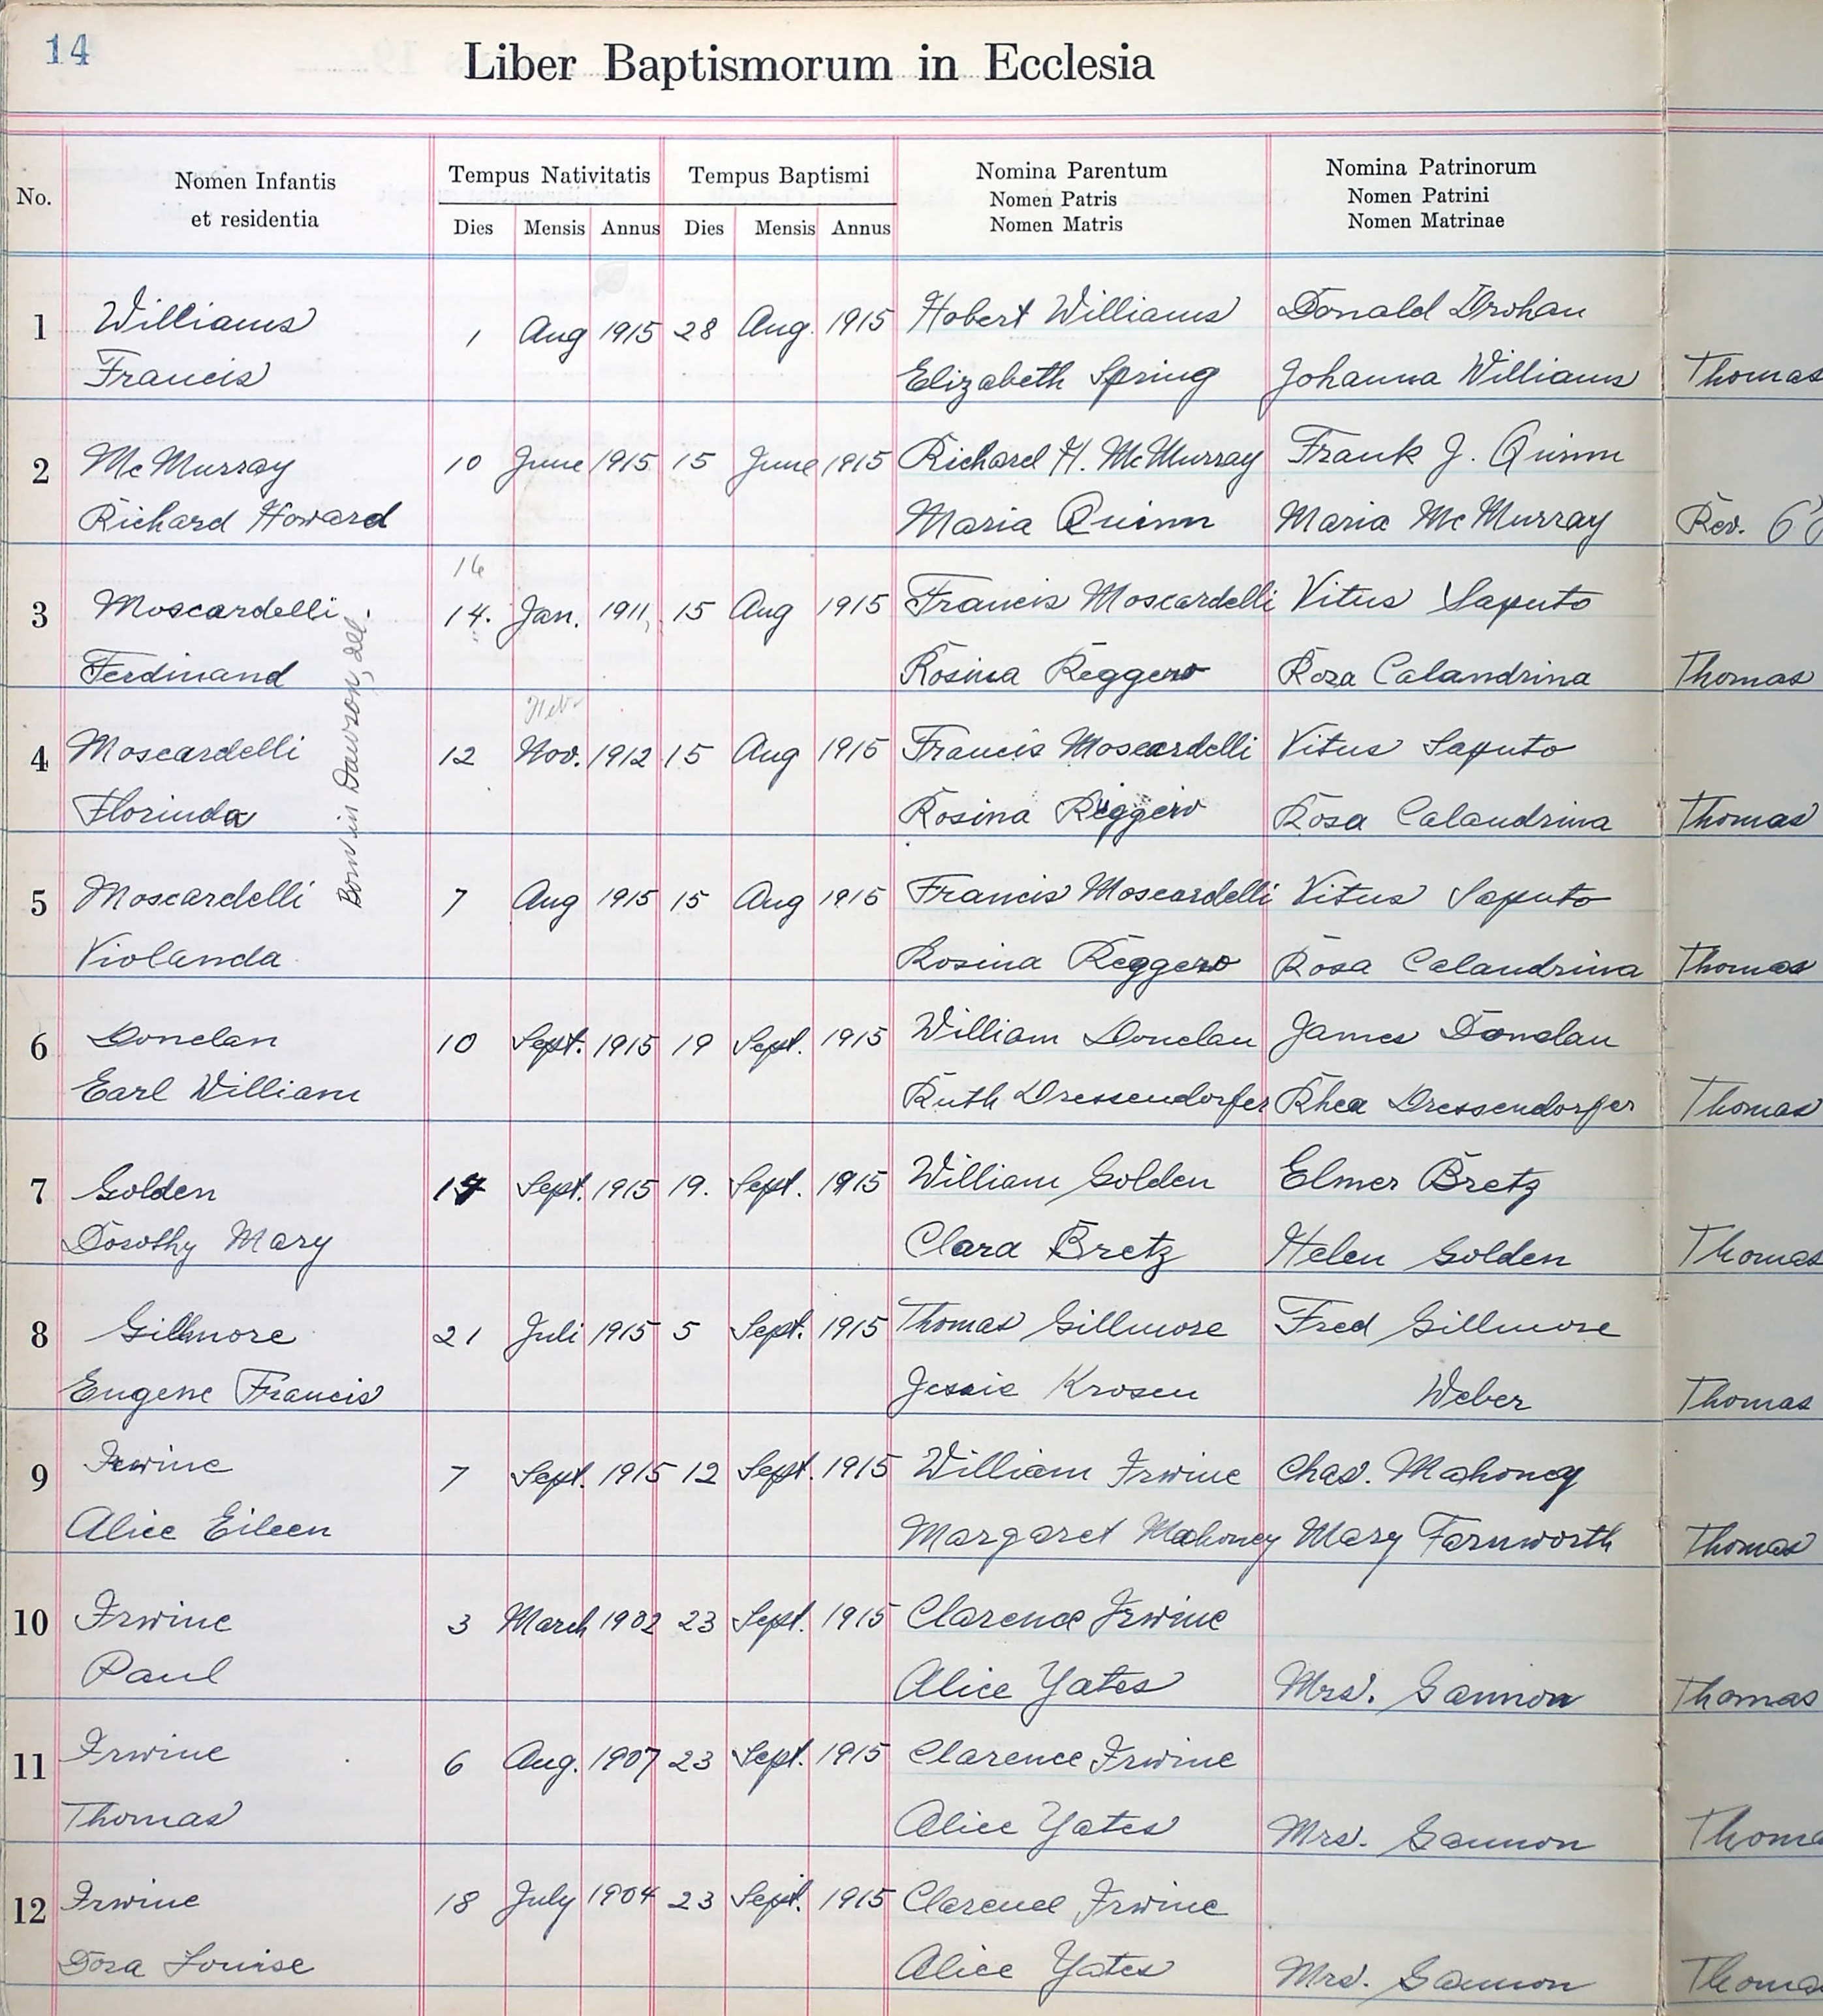 14
Liber Baptismorum in Ecclesia
No.
Nomen Infantis
et residentia
Tempus Nativitatis
Dies Mensis Annus
Tempus Baptismi
Dies Mensis Annus
Nomina Parentum
Nomen Patris
Nomen Matris
Nomina Patrinorum
Nomen Patrini
Nomen Matrinae
1 Williams 1 Aug 1915 28 Aug. 1915 Hobert Williams Donald Drohan
Francis Elizabeth Spring Johanna Williams Thomas
2 McMurray 10 June 1915 15 June 1915 Richard H. McMurray Frank J. Quinn
Richard Howard Maria Quinn Maria McMurray Rev.
16
3 Moscardelli 14. Jan. 1911, 15 Aug 1915 Francis Moscardelli Vitus Saputo
Ferdinand Rosina Reggero Roza Calandrina Thomas
Born in Dawson, all.
Feb
4 Moscardelli 12 Nov. 1912 15 Aug 1915 Francis Moscardelli Vitus Saputo
Florinda Rosina Rosa Calandrina Thomas
5 Moscardelli 7 Aug 1915 15 Aug 1915 Francis Moscardelli Vitus Saputo
Violanda Rosina Reggero Rosa Calandrina Thomas
6 Donelan 10 Sept. 1915 19 Sept. 1915 William Donelan James Donelan
Earl William Ruth Dressendorfer Rhea Dressendorfer Thomas
7 Golden Sept. 1915 19. Sept. 1915 William Golden Elmer Bretz
Dorothy Mary Clara Bretz Helen Golden Thomas
8 Gillmore 21 Juli 1915 5 Sept. 1915 Thomas Gillmore Fred Gillmore
Eugene Francis Jessie Krosen Weber Thomas
9 Irwine 7 Sept. 1915 12 Sept. 1915 William Irwine Chas. Mahoney
Alice Eileen Margaret Mahoney Mary Farnworth Thomas
10 Irwine 3 March 1902 23 Sept. 1915 Clarence Irwine
Paul Alice Yates Mrs. Gannon Thomas
11 Irwine 6 Aug. 1907 23 Sept. 1915 Clarence Irwine
Thomas Alice Yates Mrs. Gannon Thoma
12 Irwine 18 July 1904 23 Sept. 1915 Clarence Irwine
Dora Louise Alice Yates Mrs. Gannon Thoma